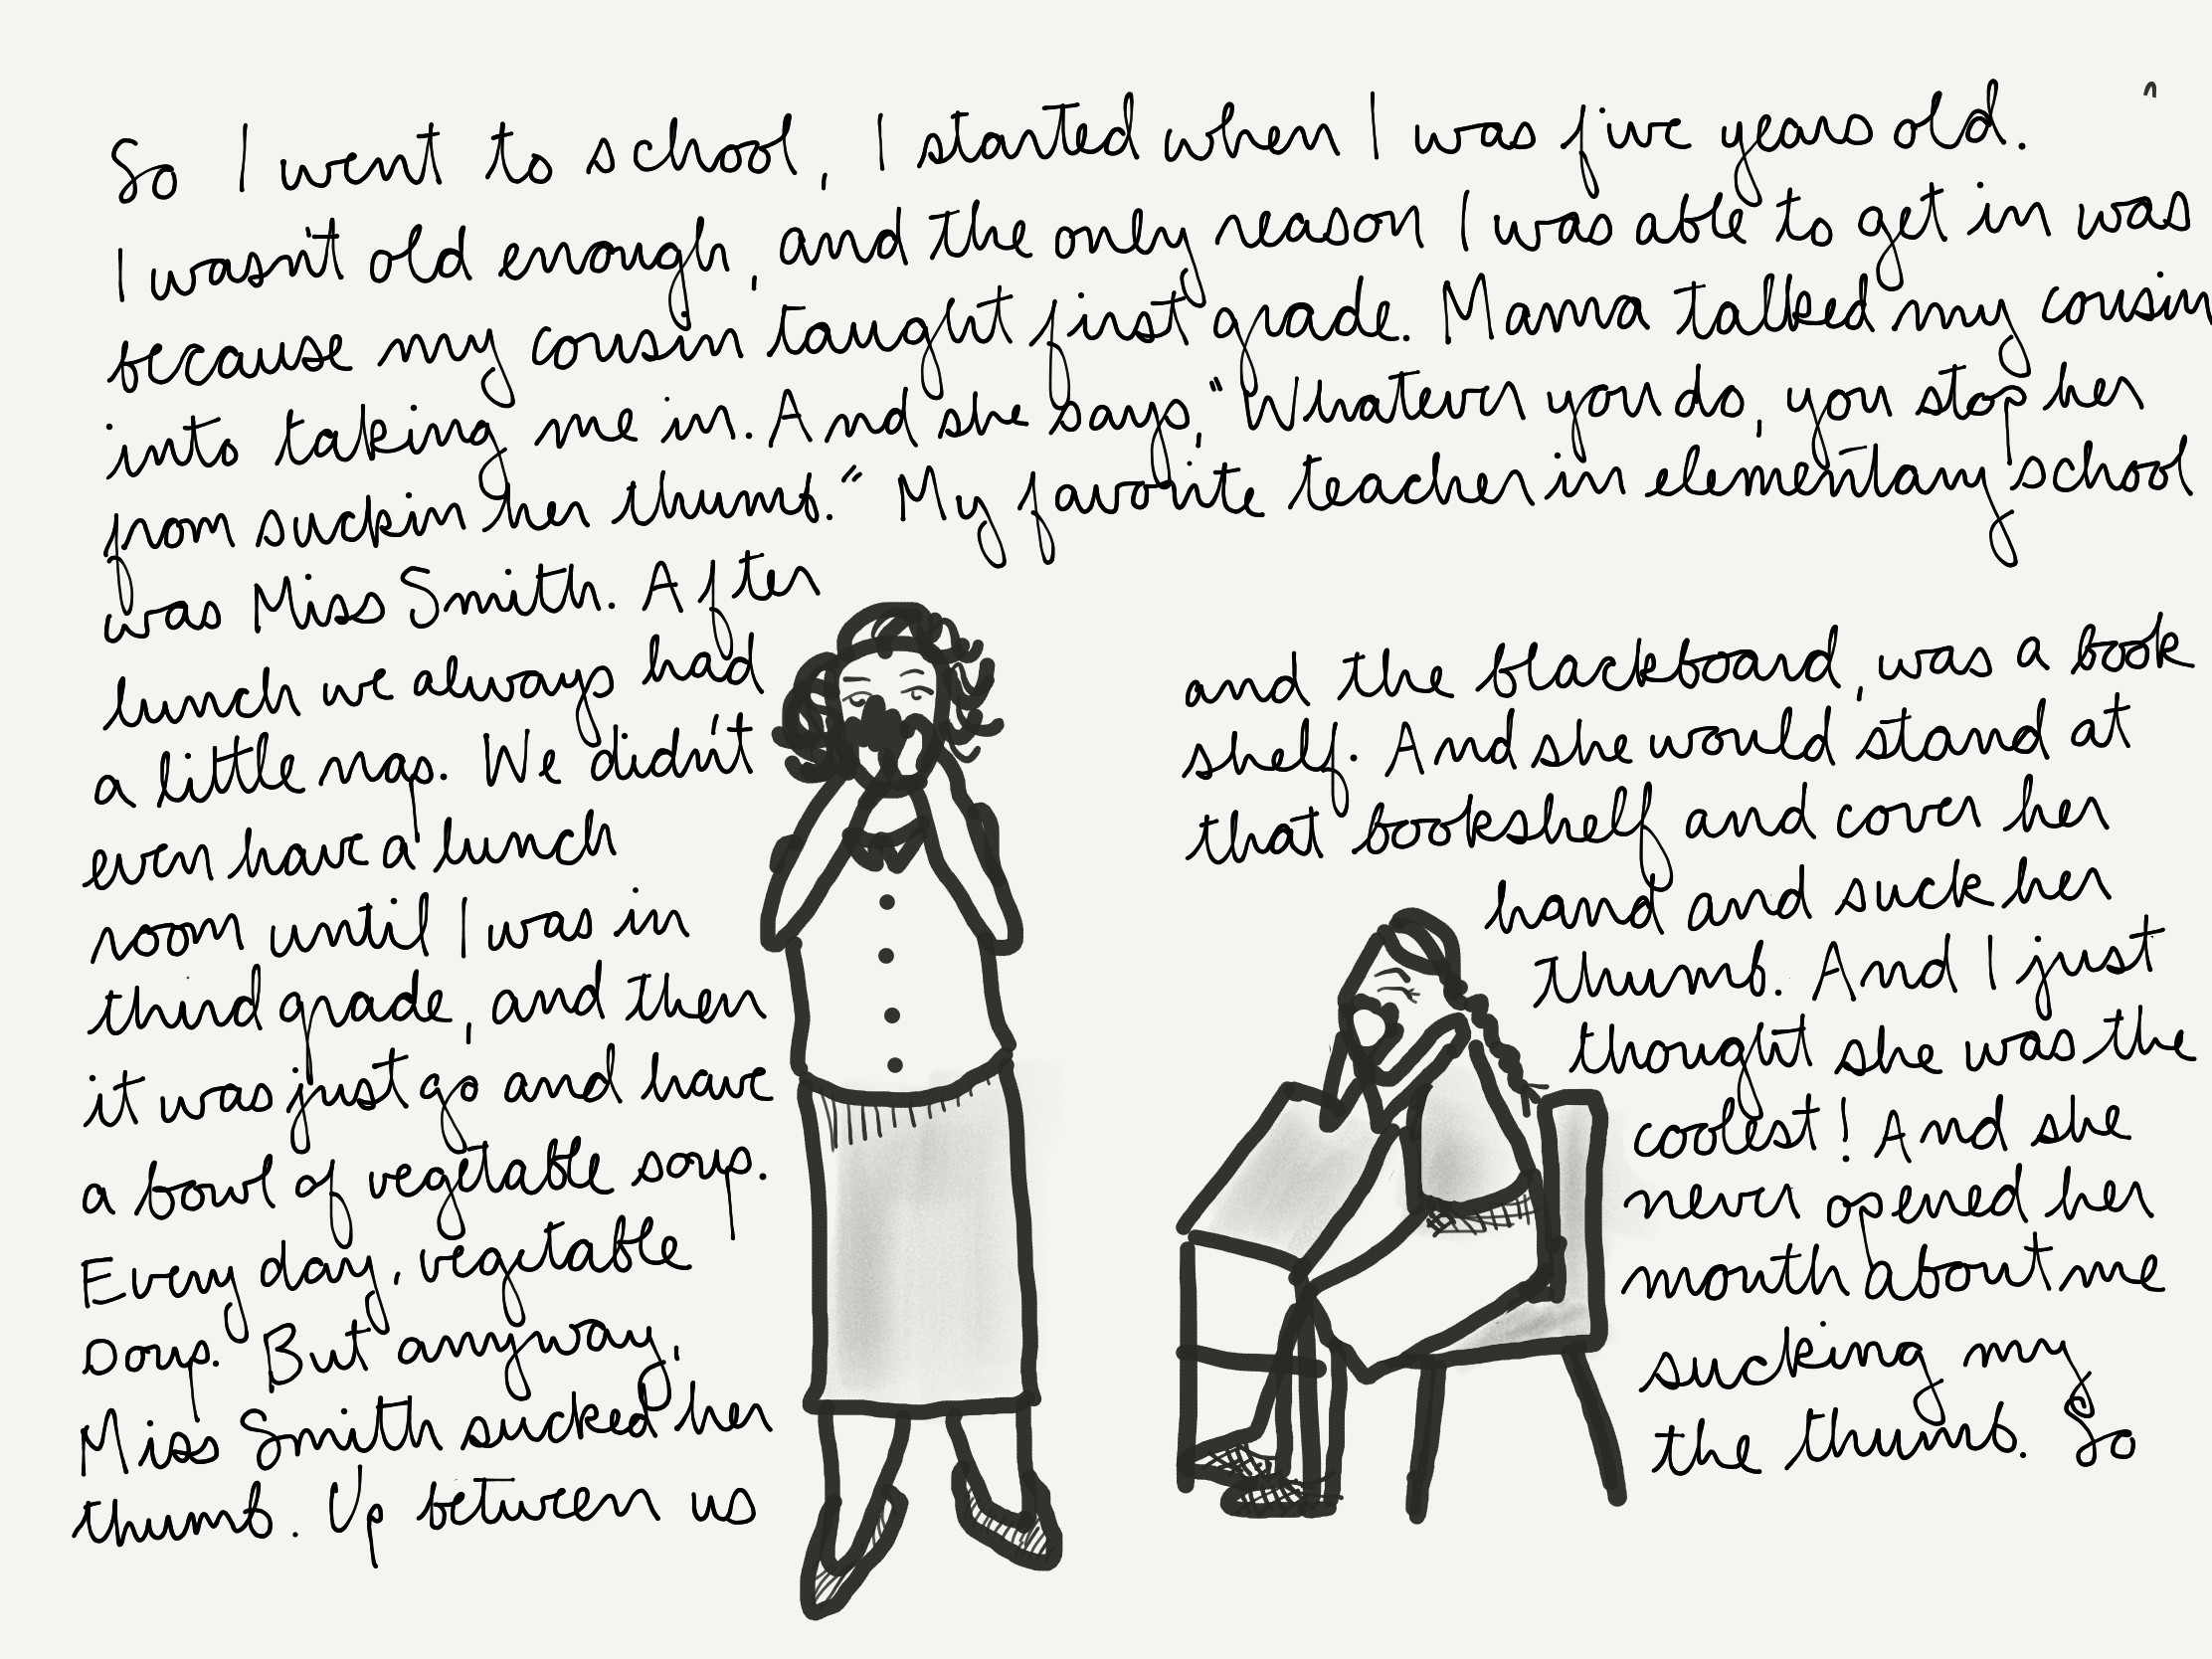 So I went to school, I started when I was five years old.
I wasn't old enough, and the only reason I was able to get in was
because my cousin taught first grade. Mama talked my cousin
into taking me in. And she says, "Whatever you do, you stop her
from suckin her thumb." My favorite teacher in elementary school
was Miss Smith. After
lunch we always had
a little nap. We didn't
even have a lunch
room until I was in
third grade, and then
it was just go and have
a bowl of vegetable soup.
Every day, vegetable
soup. But anyway,
Miss Smith sucked her
thumb. Up between us
and the blackboard, was a book
shelf. And she would stand at
that bookshelf and cover her
hand and suck her
thumb. And I just
thought she was the
coolest! And she
never opened her
mouth about me
sucking my
the thumb. So